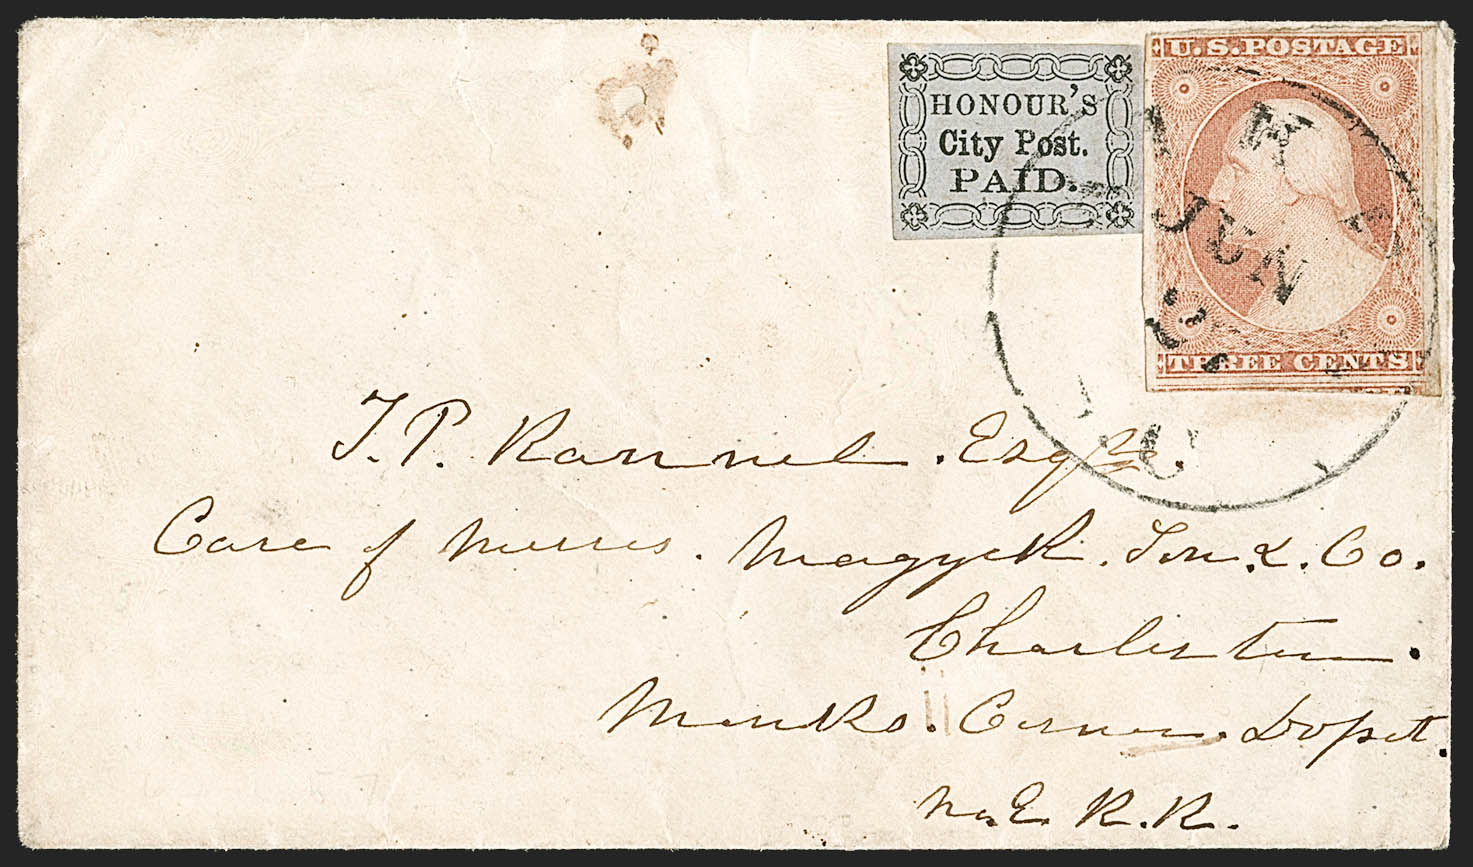 HONOUR'S
City Post.
PAID.
U.S. POSTAGE
THREE CENTS
JUN
T. P. Ravenel. Esqre.
Care of Messrs. Mazyck. Son. &. Co.
Charleston.
Monks. Corner. Depot.
N. E. R. R.